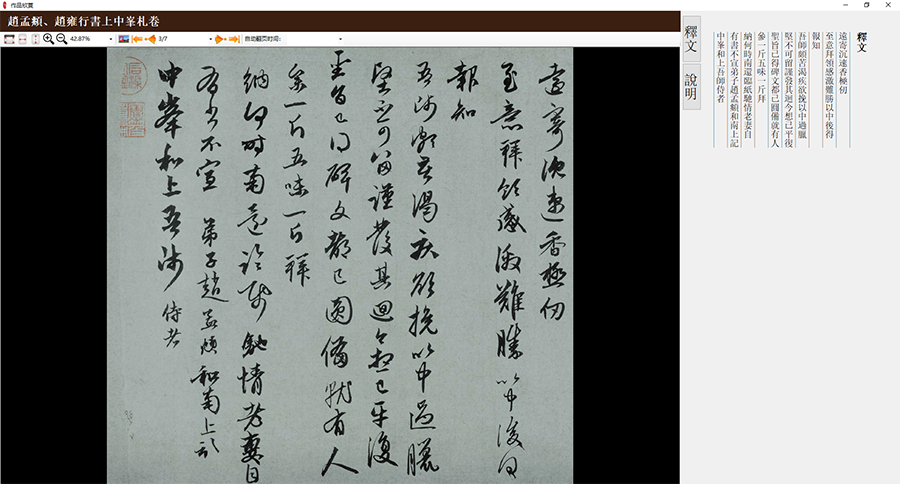 作品欣赏
趙孟頫、趙雍行書上中峯札卷
42.87%
3/7
自动翻页时间:
遠寄沉速香極仞
至意拜領感激難勝以中後得
報知
吾師頗苦渴疾欲挽以中過臘
堅不可留謹發其迴今想已平復
聖旨已得碑文都已圓備就有人
參一斤五味一斤拜
納何時南還臨紙馳情老妻自
有書不宣 弟子趙孟頫和南上記
中峯和上吾師侍者
釋文
說明
釋文
遠寄沉速香極仞
至意拜領感激難勝以中後得
報知
吾師頗苦渴疾欲挽以中過臘
堅不可留謹發其迴今想已平復
聖旨已得碑文都已圓備就有人
參一斤五味一斤拜
納何時南還臨紙馳情老妻自
有書不宣弟子趙孟頫和南上記
中峯和上吾師侍者